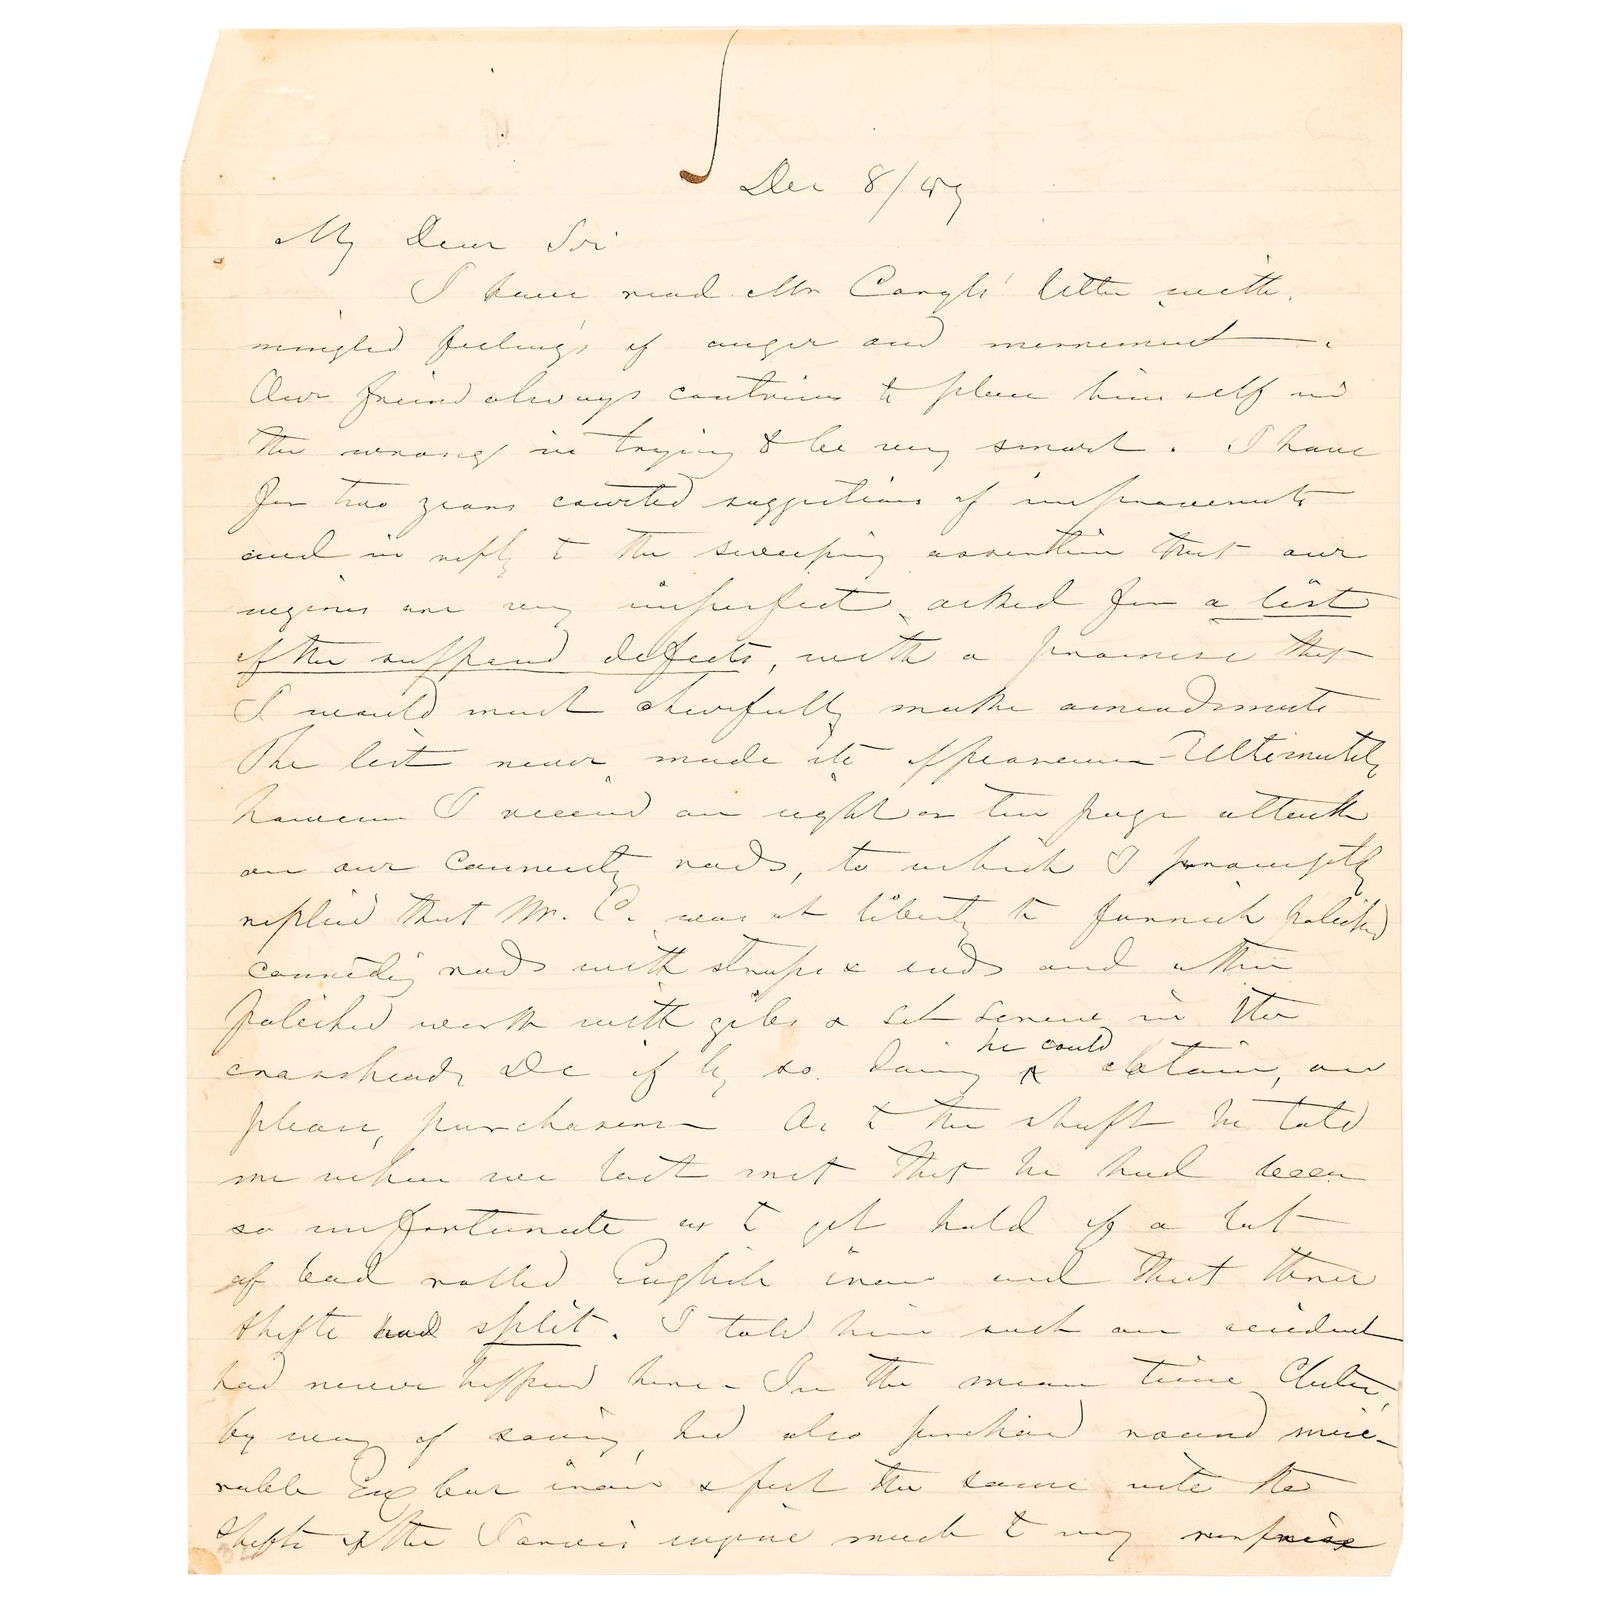 Dec 8/49
My Dear Sir
I have read Mr letter with
mingled feelings of anger and merriment.
Our friend always contrives to place himself in
the wrong in trying to be very smart. I have
for two years courted suggestions of improvements
and in reply to the sweeping assertion that our
engines are very imperfect, asked for a list
of the supposed defects, with a promise that
I would most cheerfully make amendments
The list never made its appearance - Ultimately
however I received an eight or ten page attack
on our connecting rods, to which I promptly
replied that Mr. C. was at liberty to furnish polished
connecting rods with straps & ends and other
polished work with gibs & set screws in the
crossheads &c if by so doing he could obtain, or
please, purchasers - As to the shaft he told
me when we last met that he had been
so unfortunate as to get hold of a lot
of bad rolled English iron and that three
shafts had split. I told him such an accident
had never happened here - In the mean time
by way of saving, had also purchased round mise-
rable Eng bar iron & put the same into the
shafts of the engine much to my surprise